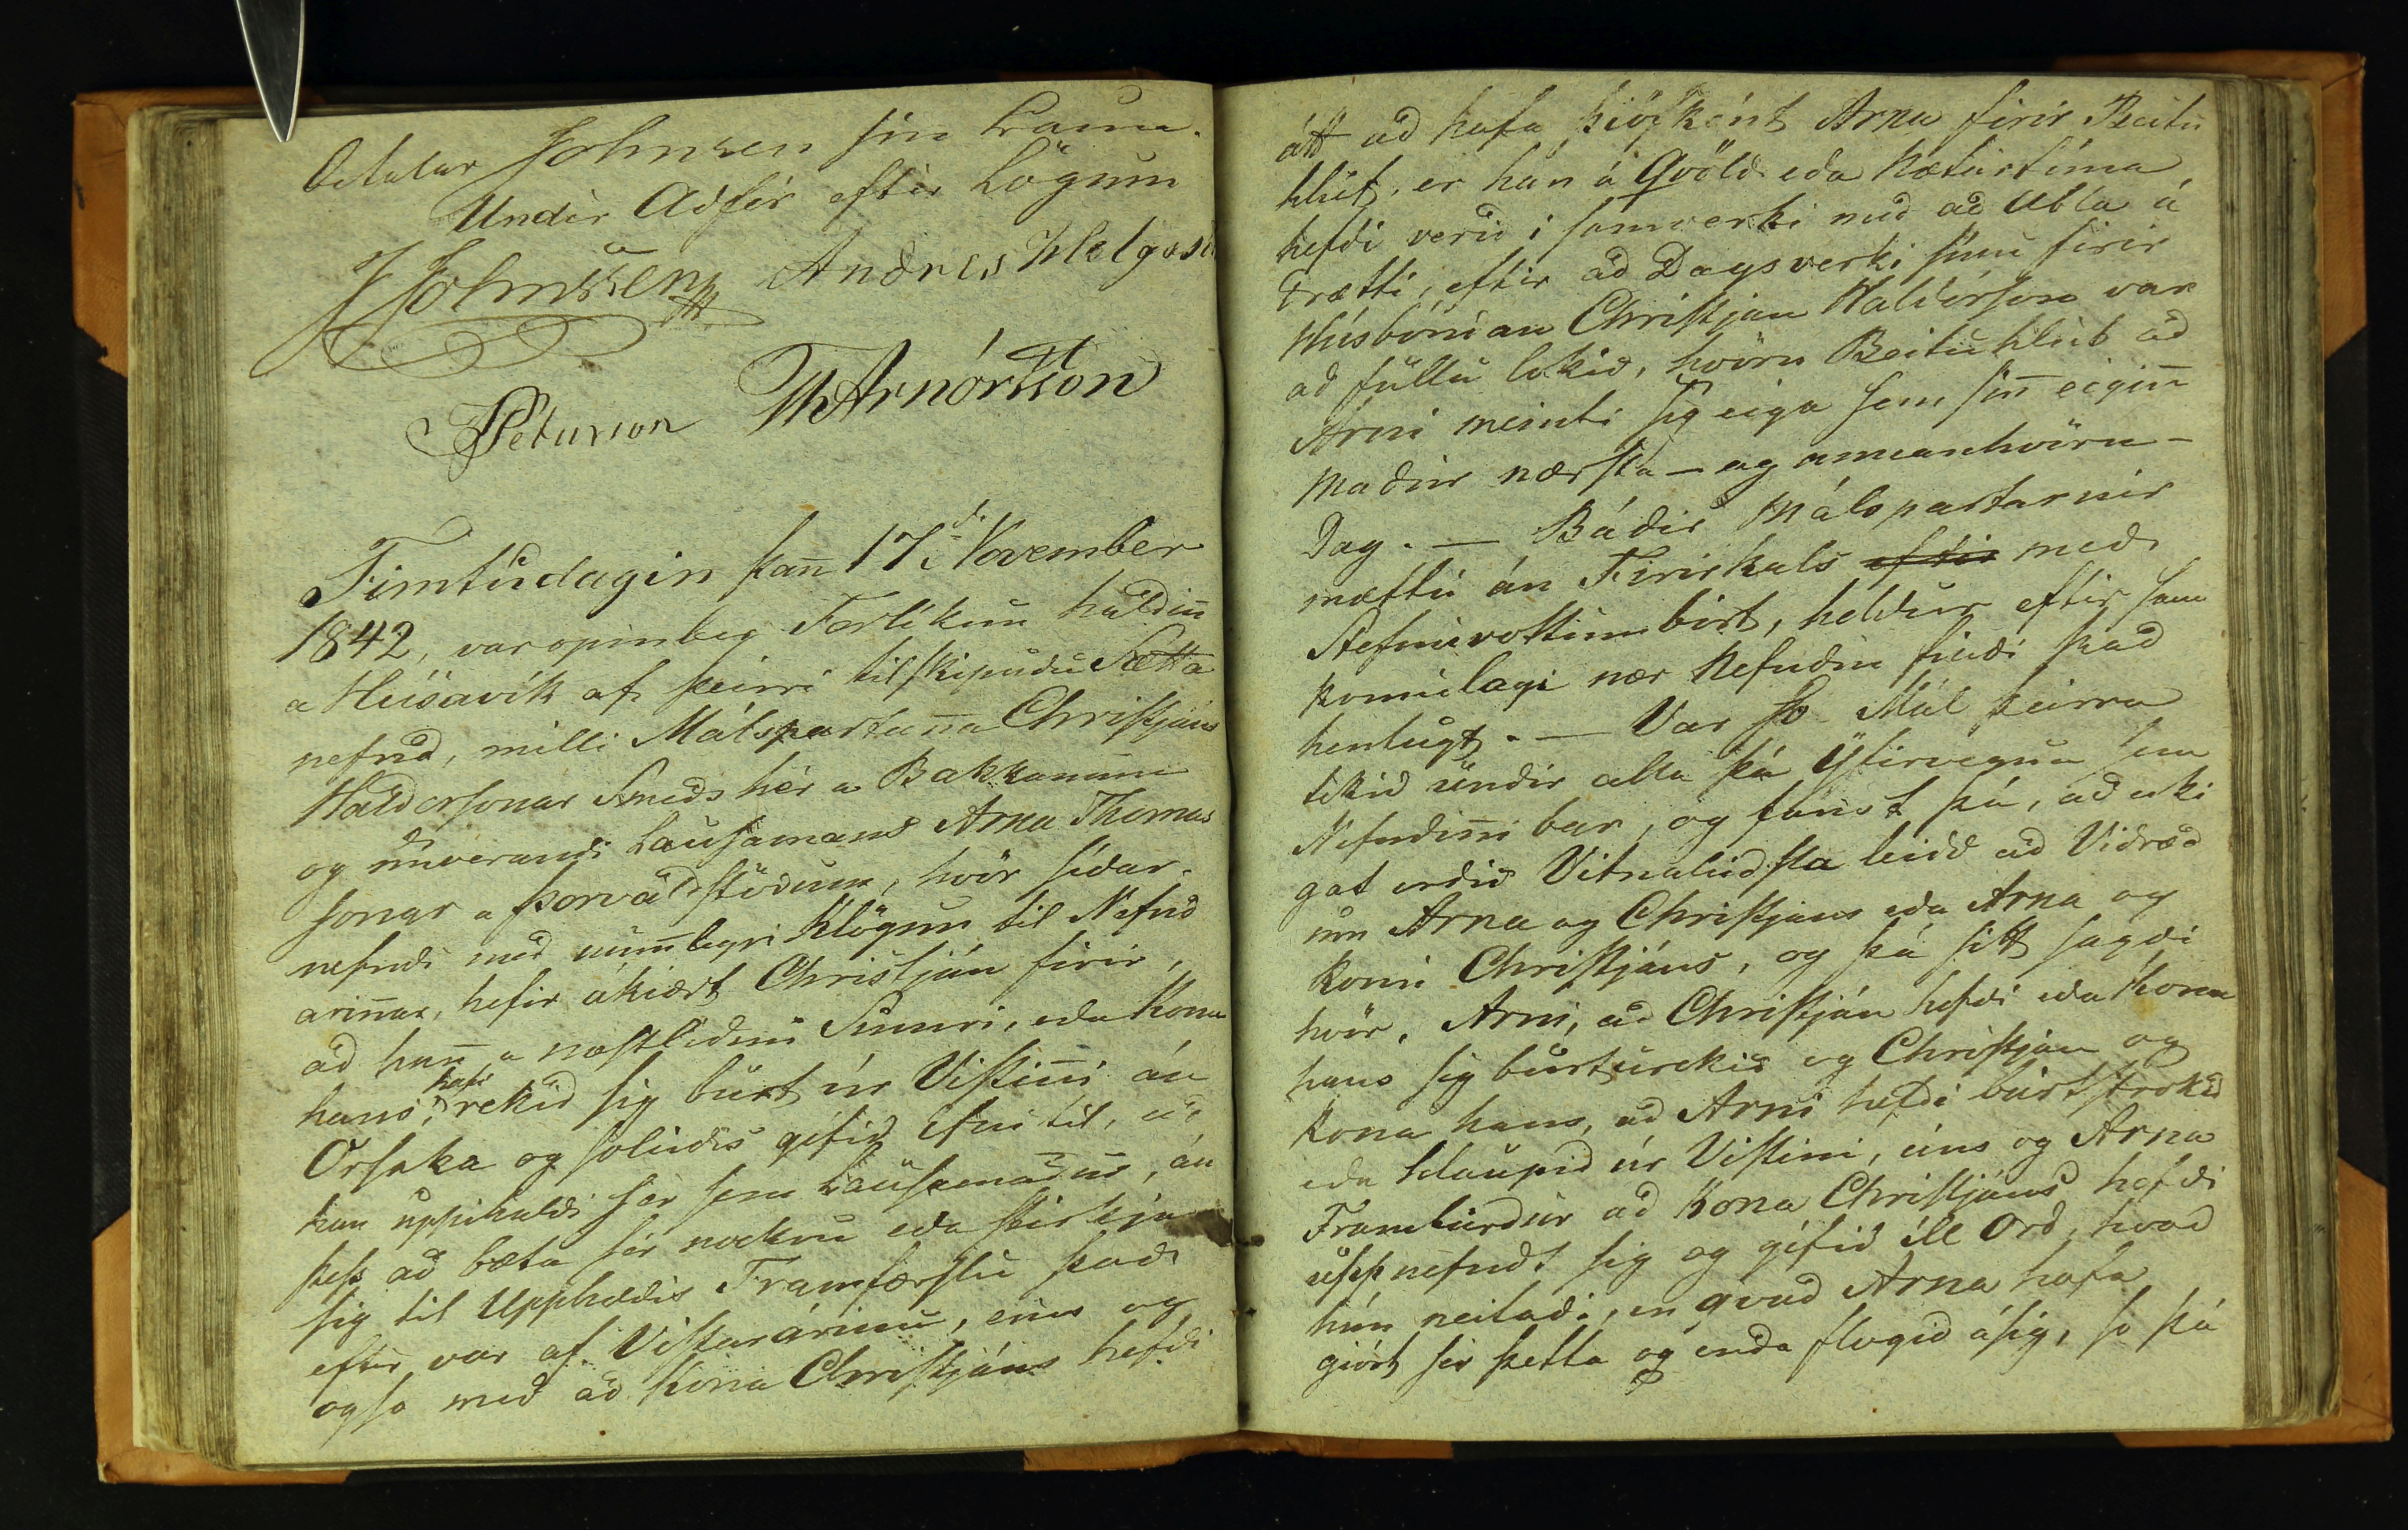 betalar Johnsen sín Laun.
Undir Adför eftir Lögum
J Johnssen Andres Helgason
P Peturson Th Arnórsson
Fimtudagin þan̄ 17da November
1842, var opinber Forlíkun haldin̄
a Húsavík af þeirri tilskipudu Sætta
nefnd, milli Málspartan̄a Christjáns
Haldorsonar Smeds hér a Bakkanum
og núverandi Lausamans Arna Thomas
sonar a Þorvaldstödum, hvör sídar-
nefndi med mun̄legri Klögun til Nefnd
arin̄ar, hefir ákiært Christján firir,
ad han̄ a næstlidnu Sumri, eda Kona
hans, hafi rekid sig burt úr Vistin̄i án
Orsaka og soleidis gefid efni til, ad
han uppihaldi sér sem Lausamadur, án
þess ad bæta sér nockru eda stirkja
sig til Upphædis Framfærslu þad
eftir var af Vistarárinu, eins og
ogso med ad Kona Christjáns hefdi
átt ad hafa þiófként Arna firir Beitu
hlut, er hán á Qvöld eda Næturtíma
hefdi verid i samverki med ad abla á
Drætti, eftir ad Dagsverki sínu firir
Húsbóndan Christjan Haldórson var
ad fullu lokid, hvörn Beitu hlut ad
Arni meinti sig eiga sem sin̄ eigin̄
Madur nærsta - og annanhvörn-
Dag. — Bádir Málspartarnir
mættu án Firirkals eftir med
Stefnuvottum birt, heldur eftir sam
komulagi nær Nefndin findi það
henlugt. — Var so Mál þeirra
tekid undir alla þá Yfirvegun sem
Nefndin̄i bar, og fanst þá, ad ecki
gat ordid Vitnaleidsla leidd ad Vidræd
um Arna og Christjans eda Arna og
Konu Christjáns, og þá sitt sagdi
hvör, Arni, ad Christján hefdi eda Kona
hans sig burturekid og Christján og
Kona hans, ad Arni hefdi burtstrokid
eda hlaupid úr Vistini, eins og Arna
Framburdur ad Kona Christjáns hafdi
uppnefndt sig og géfid ill Ord, hvad
hún neitadi, en qvad Arna hafa
giört sér þetta og enda flogid ásig, so þá